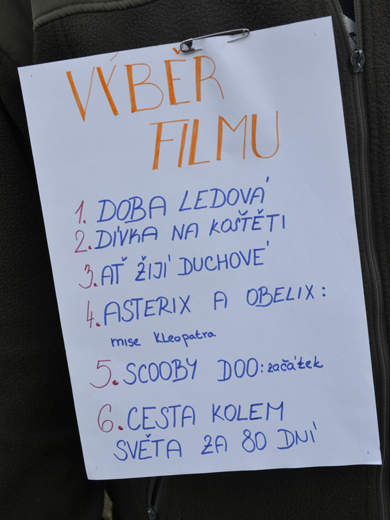 VÝBĚR
FILMU
1. DOBA LEDOVÁ
2. DÍVKA NA KOŠTĚTI
3. AŤ ŽIJÍ DUCHOVÉ
4. ASTERIX A OBELIX:
mise Kleopatra
5. SCOOBY DOO: začátek
6. CESTA KOLEM
SVĚTA ZA 80 DNÍ